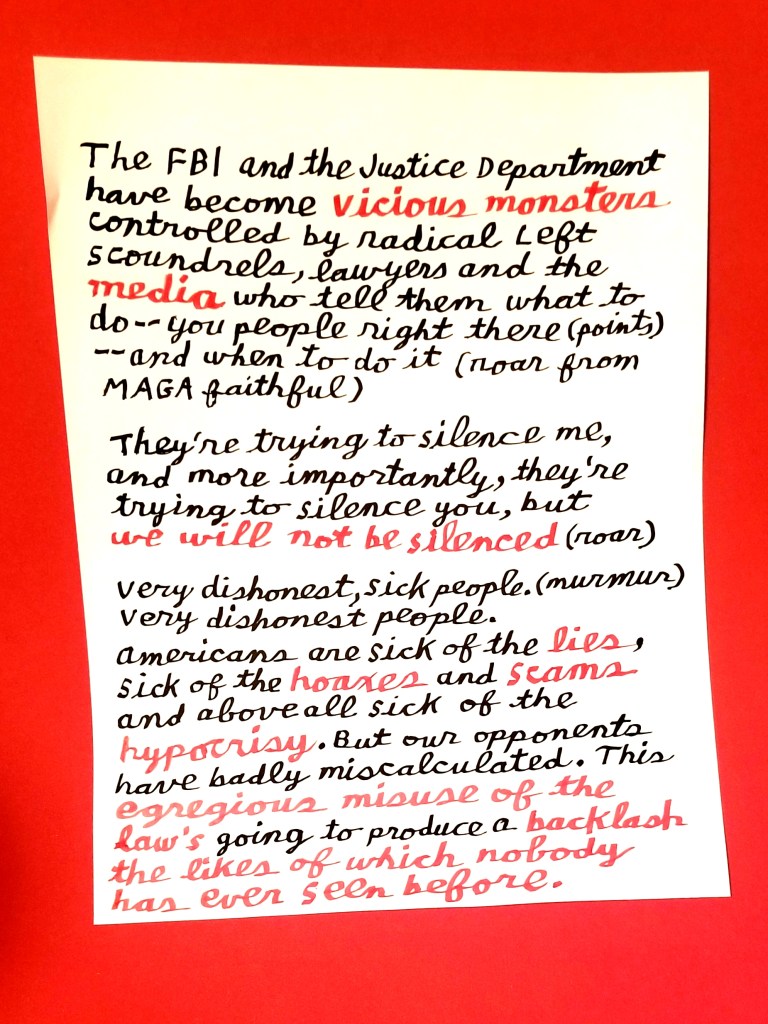 The FBI and the Justice Department
have become vicious monsters
controlled by radical Left
scoundrels, lawyers and the
media who tell them what to
do--you people right there (points)
--and when to do it (roar from
MAGA faithful)
They're trying to silence me,
and more importantly, they're
trying to silence you, but
we will not be silenced (roar)
very dishonest, sick people. (murmur)
very dishonest people.
americans are sick of the lies,
sick of the hoaxes and scams
and above all sick of the
hypocrisy. But our opponents
have badly miscalculated. This
egregious misuse of the
law's going to produce a backlash
the likes of which nobody
has ever seen before.